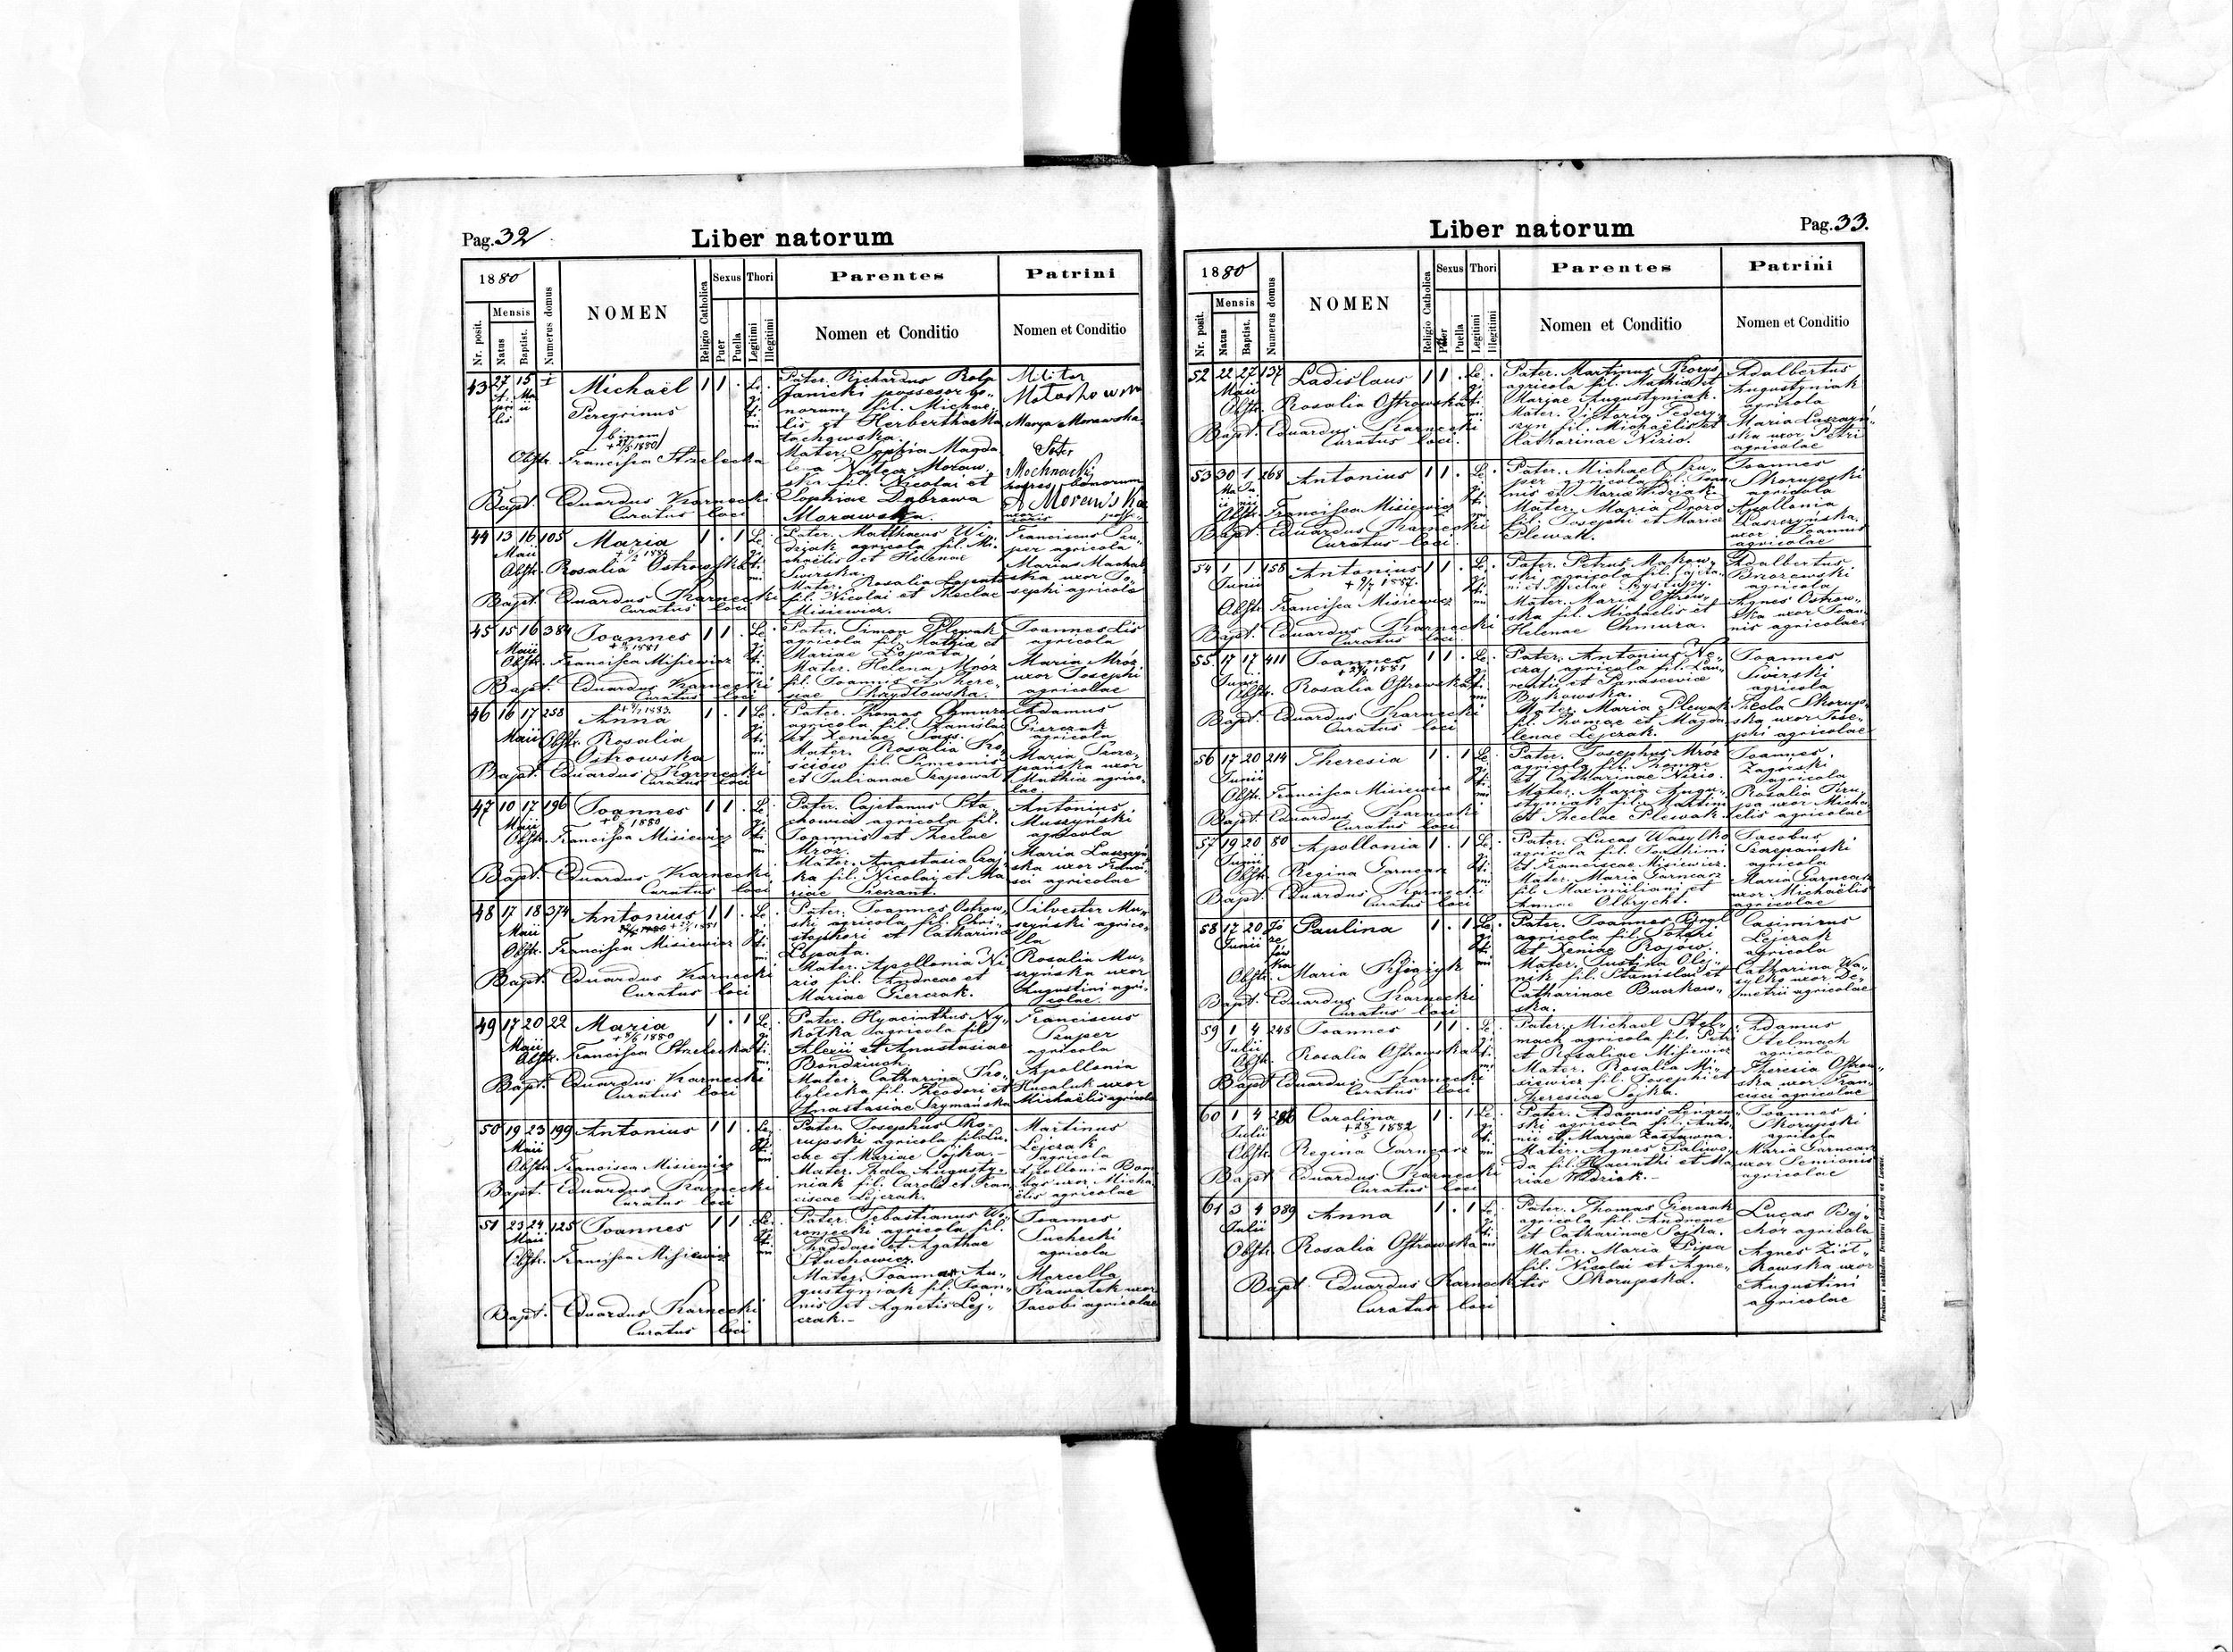 Pag. 32
Liber natorum
1880
Nr. posit.
Mensis
Natus
Baptist.
Numerus domus
NOMEN
Religio Catholica
Sexus
Puer
Puella
Thori
Legitimi
Illegitimi
Parentes
Nomen et Conditio
Patrini
Nomen et Conditio
43 27 15 Michaël 1 1 .
Peregrinus
Obstr. Francisca Strzelecka
Bapt. Eduardus Karnecki
Curatus loci
Pater. Richardus
Janicki possesor bo-
norum fil. Michae-
lis et
Mater. Sophia Magda
lena
fil. Nicolai et
Sophiae Dąbrowa
Morawska.
Marya Morawska
Mochnacki
haeres bonorum
44 13 16 105 Maria 1 . 1
Maii
Obstr. Rosalia Ostrowska
Bapt. Eduardus Karnecki
Curatus loci
Pater. Matthaeus Wi-
dziak agricola fil. Mi-
chaëlis et Helenae
Swirska.
Mater. Rosalia Łopata
fil. Nicolai et Theclae
Misiewicz.
Franciscus Szu-
per agricola
ska uxor Jo-
sephi agricola
45 15 16 384 Joannes 1 1 .
Maii
Obstr. Francisca Misiewicz
Bapt. Eduardus Karnecki
Curatus loci
Pater. Simon Plewak
agricola fil. Mathia et
Mariae Łopata
Mater. Helena Mróz
fil. Joannis et There-
siae Skrzydłowska.
Joannes Lis
agricola
Maria Mróz
uxor Josephi
agricolae
46 16 17 258 Anna 1 . 1
Maii Obstr. Rosalia
Ostrowska
Bapt. Eduardus Karnecki
Curatus loci
Pater. Thomas Chmura
agricola fil. Stanislai
et Xeniae
Mater. Rosalia Ko-
ściów fil. Simeonis
et Julianae
Adamus
Gierczak
agricola
Maria
uxor
Mathia agrico-
lae
47 10 17 196 Joannes 1 1 .
Maii
Obstr. Francisca Misiewicz
Bapt. Eduardus Karnecki
Curatus loci
Pater. Cajetanus Sta-
chowicz agricola fil.
Joannis et Theclae
Mróz.
Mater. Anastasia
fil. Nicolai et Ma
riae
Antonius
Muszyński
agricola
Maria Laszczyń
ska uxor Franci-
sci agricolae
48 17 18 374 Antonius 1 1 .
Maii
Obstr. Francisca Misiewicz
Bapt. Eduardus Karnecki
Curatus loci
Pater. Joannes Ostrow-
ski agricola fil. Chri-
stophori et Catharinae
Łopata.
Mater. Apollonia Ni
zio fil. Andreae et
Mariae Gierczak.
Silvester Mu-
szyński agrico-
la
Rosalia Mu-
szyńska uxor
Augustini agri-
colae.
49 17 20 22 Maria 1 . 1
Maii
Obstr. Francisca Strzelecka
Bapt. Eduardus Karnecki
Curatus loci
Pater. Hyacinthus Ny-
kołka agricola fil.
Alexii et Anastasiae
Bondziuch.
Mater. Catharina Ko-
bylecka fil. Theodori et
Anastasiae Szymańska
Franciscus
Szuper
agricola
Apollonia
Kucaluk uxor
Michaëlis agricola
50 19 23 199 Antonius 1 1 .
Maii
Obstr. Francisca Misiewicz
Bapt. Eduardus Karnecki
Curatus loci
Pater. Josephus Sko-
rupski agricola fil. Lu-
cae et Mariae Sojka.-
Mater. Thecla Augusty-
niak fil. Caroli et Fran
ciscae Lejczak.
Martinus
Lejczak
agricola
Apollonia
uxor Micha
ëlis agricolae
51 23 24 125 Joannes 1 1 .
Maii
Obstr. Francisca Misiewicz
Bapt. Eduardus Karnecki
Curatus loci
Pater. Sebastianus Wo-
roniecki agricola fil.
Thaddaei et Agathae
Stachowicz.
Mater. Joanna Au-
gustyniak fil. Joan-
nis et Agnetis Lej-
czak.-
Joannes
Suchecki
agricola
Marcella
Kawałek uxor
Jacobi agricolae
Pag. 33.
Liber natorum
1880
Nr. posit.
Mensis
Natus
Baptist.
Numerus domus
NOMEN
Religio Catholica
Sexus
Puer
Puella
Thori
Legitimi
Illegitimi
Parentes
Nomen et Conditio
Patrini
Nomen et Conditio
52 22 27 137 Ladislaus 1 1 .
Maii
Obstr. Rosalia Ostrowska
Bapt. Eduardus Karnecki
Curatus loci.
Pater. Martinus Koryś
agricola fil. Mathia et
Mariae Augustyniak.
Mater. Victoria Federy-
szyn fil. Michaëlis et
Katharinae Nizio.
Adalbertus
Augustyniak
agricola
Maria Laszczyń-
ska uxor Petri
agricolae
53 30 1 268 Antonius 1 1 .
Obstr. Francisca Misiewicz
Bapt. Eduardus Karnecki
Curatus loci.
Pater. Michael Szu-
per agricola fil. Joan-
nis et Mariae Widziak.
Mater. Maria Drozd
fil. Josephi et Mariae
Plewak.
Joannes
Skorupski
agricola
Apollonia
Laszczyńska
uxor Joannis
agricolae
54 1 1 158 Antonius 1 1 .
Junii
Obstr. Francisca Misiewicz
Bapt. Eduardus Karnecki
Curatus loci.
Pater. Petrus Makow-
ski agricola fil. Cajeta-
ni et Theclae
Mater. Maria Ostrow-
ska fil. Michaelis et
Helenae Chmura.
Adalbertus
Brzozowski
agricola
Agnes Ostrow-
ska uxor Joan-
nis agricolae.
55 17 17 411 Joannes 1 1 .
Junii
Obstr. Rosalia Ostrowska
Bapt. Eduardus Karnecki
Curatus loci
Pater. Antonius
agricola fil. Lau-
rentii et Parascevice
Bukowska.
Mater. Maria Plewak
fil. Thomae et Magda-
lenae Lejczak.
Joannes
Swirski
agricola
Thecla Skorup-
ska uxor Jose-
phi agricolae
56 17 20 214 Theresia 1 . 1
Junii
Obstr. Francisca Misiewicz
Bapt. Eduardus Karnecki
Curatus loci
Pater. Josephus Mróz
agricola fil. Thomae
et Catharinae Nizio.
Mater. Maria Augu-
styniak fil. Martini
et Theclae Plewak.
Joannes
Zagurski
agricola
Rosalia
uxor Micha
ëlis agricolae
57 19 20 80 Apollonia 1 . 1
Junii
Obstr. Regina Garncarz
Bapt. Eduardus Karnecki
Curatus loci
Pater. Lucas Wasylko
agricola fil. Joachimi
et Franciscae Misiewicz.
Mater. Maria Garncarz
fil. Maximiliani et
Annae Olbrycht.
Jacobus
Szczepański
agricola
Maria Garncarz
uxor Michaëlis
agricolae
58 17 20 Paulina 1 . 1
Junii
Obstr. Maria Książyk
Bapt. Eduardus Karnecki
Curatus loci
Pater. Joannes Brył
agricola fil.
et Xeniae Rojów.
Mater. Justina Olej-
nik fil. Stanislai et
Catharinae Buczkow-
ska.
Casimirus
Lejczak
agricola
Catharina Wa-
sylko uxor De-
metrii agricolae
59 1 4 248 Joannes 1 1 .
Julii
Obstr. Rosalia Ostrowska
Bapt. Eduardus Karnecki
Curatus loci
Pater. Michael Stel-
mach agricola fil. Petri
et Rosaliae Misiewicz
Mater. Rosalia Mi-
siewicz fil. Josephi et
Theresiae Sojka.
Adamus
Stelmach
agricola
Theresia Ostrow-
ska uxor Fran-
cisci agricolae
60 1 4 Carolina 1 . 1
Julii
Obstr. Regina Garncarz
Bapt. Eduardus Karnecki
Curatus loci
Pater. Adamus
agricola fil. Anto-
nii et Mariae Zastawna.
Mater. Agnes Paliwo-
da fil. Hyacinthi et Ma
riae Widziak.-
Joannes
Skorupski
agricola
Maria Garncarz
uxor Semionis
agricolae
61 3 4 389 Anna 1 . 1
Julii
Obstr. Rosalia Ostrowska
Bapt. Eduardus Karnecki
Curatus loci
Pater. Thomas Gierczak
agricola fil. Andreae
et Catharinae Sojka.
Mater. Maria Pipa
fil. Nicolai et Agne-
tis Skorupska.
Lucas
agricola
Agnes Ziół-
kowska uxor
Augustini
agricolae